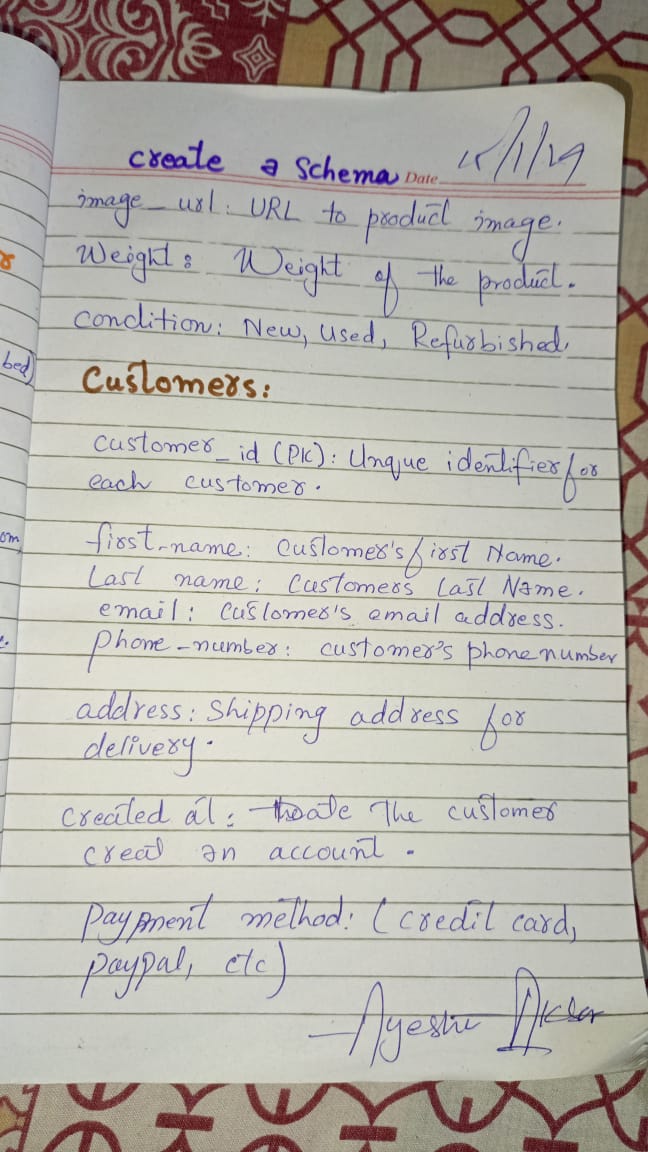 create a Schema Date
image_url: URL to product image.
Weight: Weight of the product.
condition: New, Used, Refurbished.
bed)
Customers:
customer_id (PK): Unqiue identifier for
each customer.
om,
first-name: Customer's first Name.
Last name: Customers Last Name.
email: Customer's email address.
Phone-number: customer's phone number
address: Shipping address for
delivery.
Created at: The customer
creat an account.
Payment method: (credit card,
paypal, etc)
Ayesha